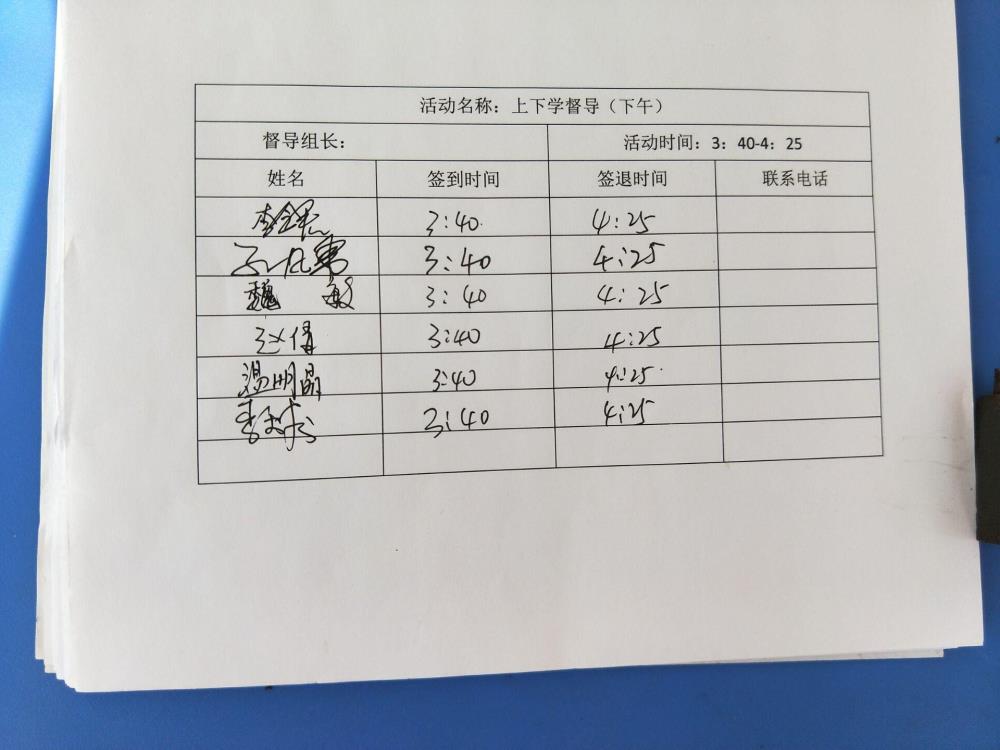 活动名称：上下学督导（下午）
督导组长： 活动时间：3：40-4：25
姓名 签到时间 签退时间 联系电话
3:40 4:25
3:40 4:25
魏 敏 3:40 4:25
赵倩 3:40 4:25
温明晶 3:40 4:25
3:40 4:25